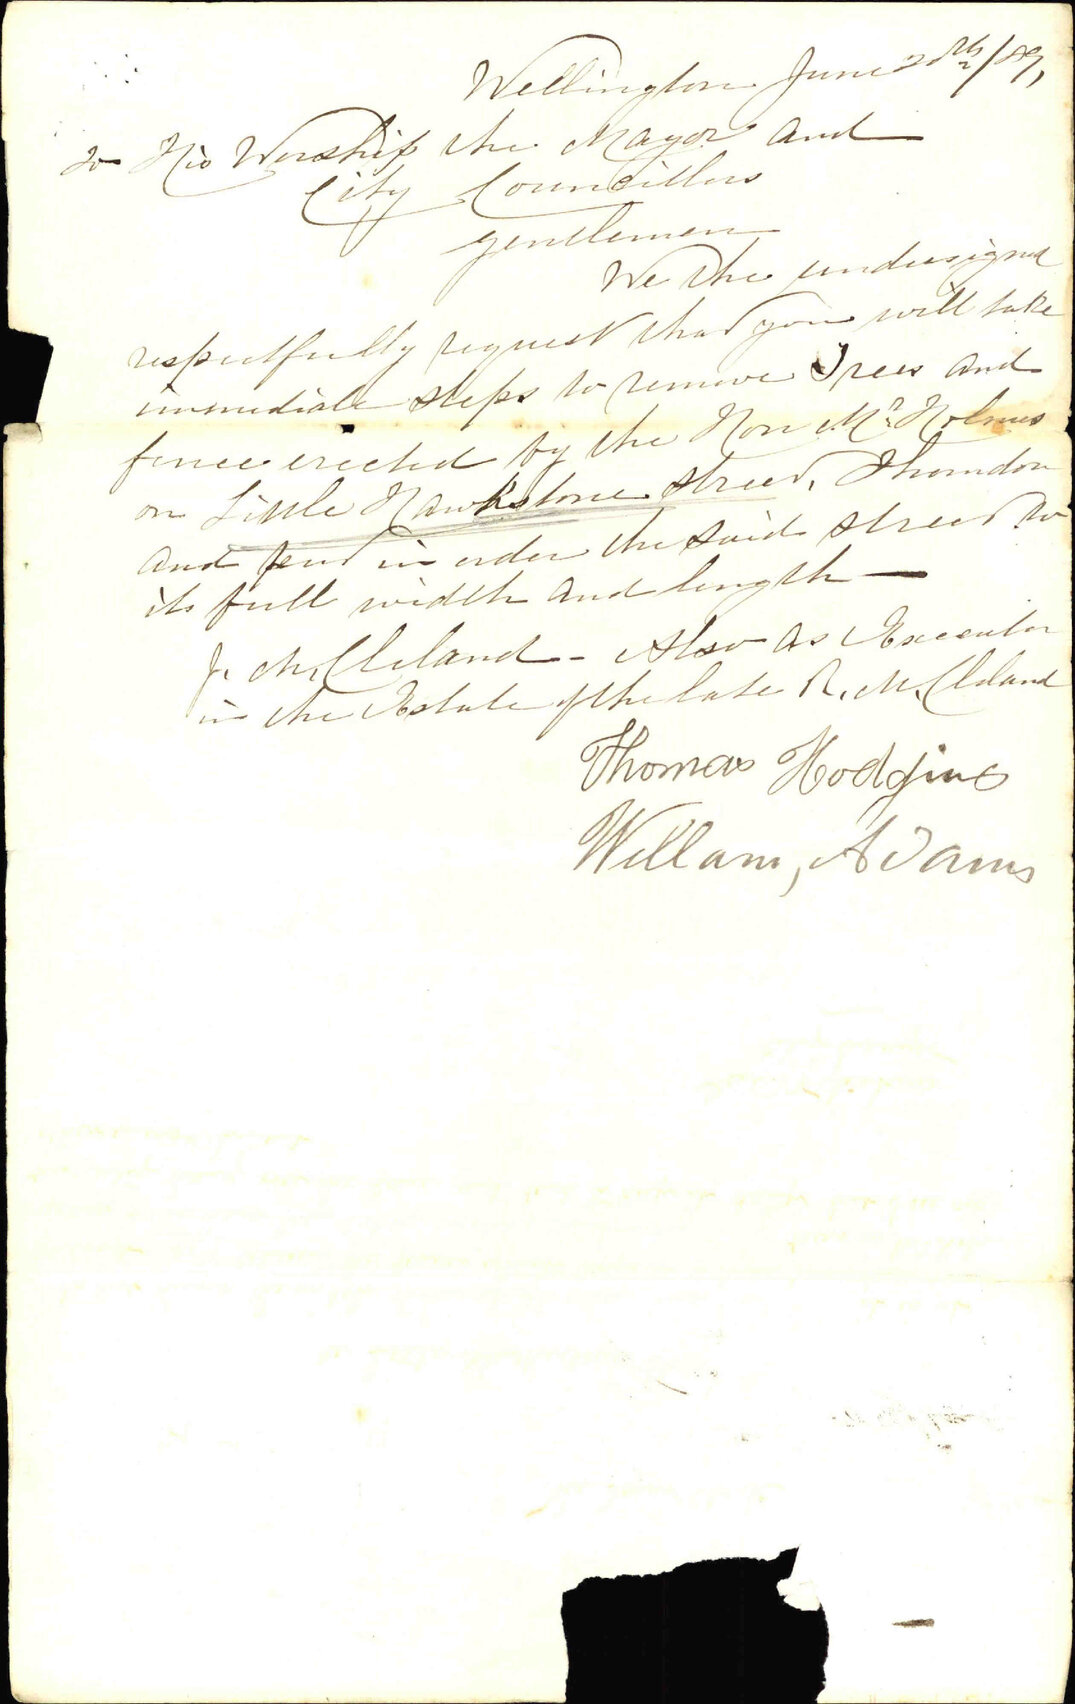 Wellington June 20th/89,
To His Worship the Mayor and
City Councillors
Gentlemen
We the undersigned
respectfully request that you will take
immediate steps to remove Trees and
fence erected by the Hon Mr Holmes
on Little Hawkstone Street, Thorndon
and put in order the said street to
its full width and length —
J. McCleland - Also as Executor
in the Estate of the late R. McCleland
Thomas Hodgins
Willam, Adams